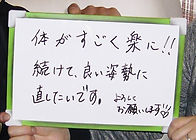 体がすごく楽に!!
続けて、良い姿勢に
直したいです。よろしく
お願いします